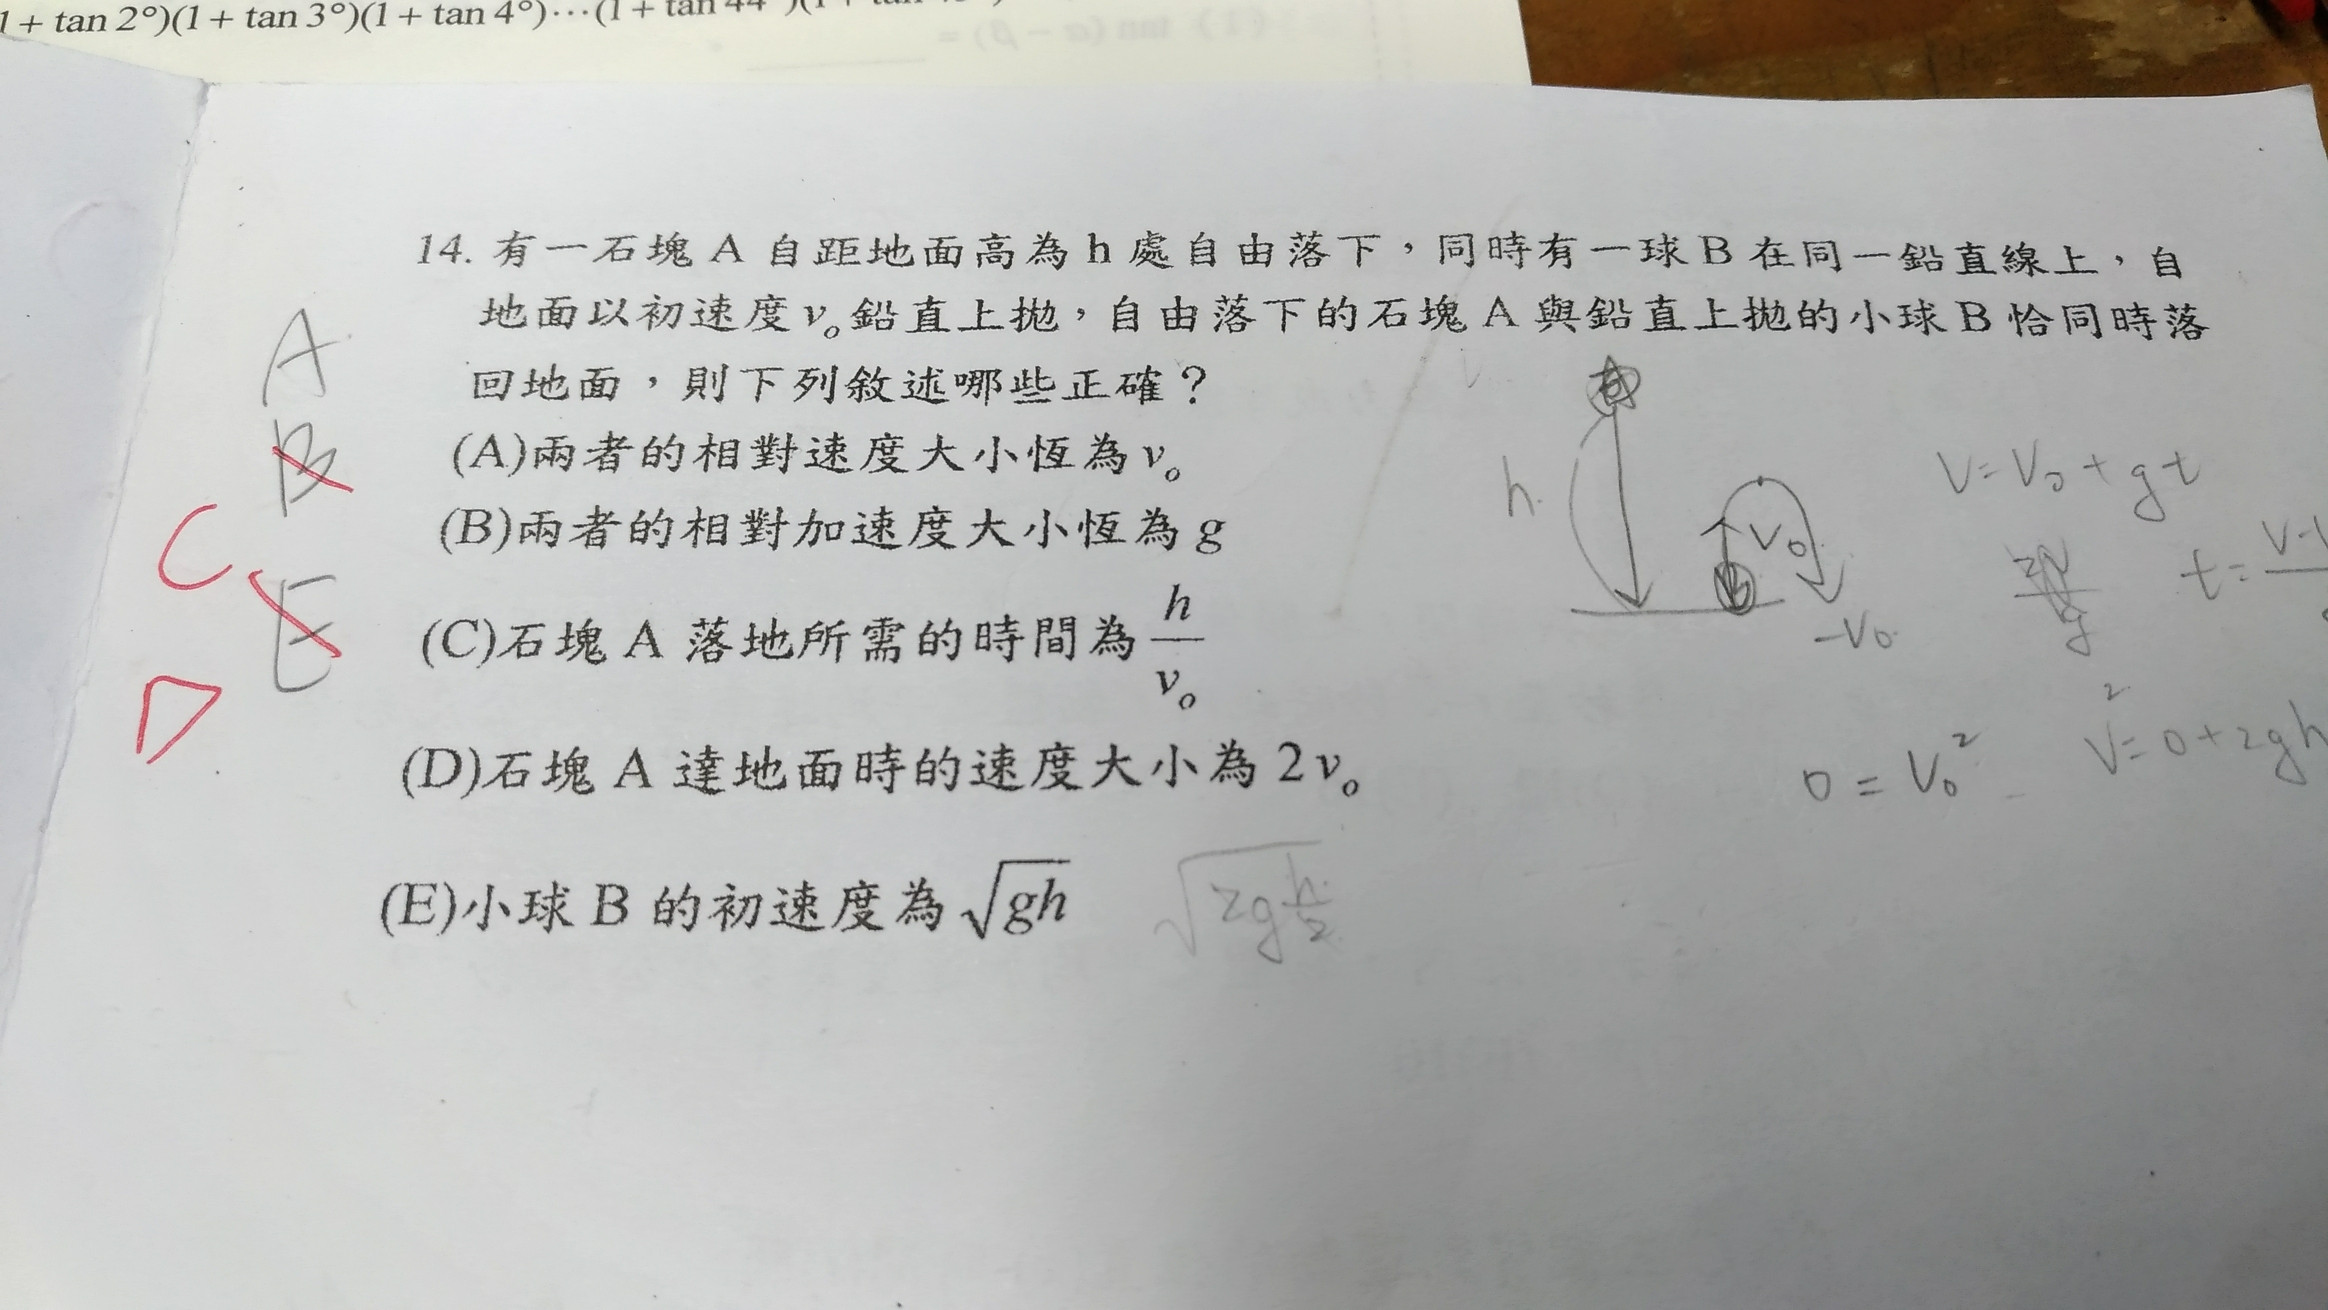 1 + tan 2°)(1 + tan 3°)(1 + tan 4°)⋯(1 + tan 44
14. 有一石塊 A 自距地面高為 h 處自由落下，同時有一球 B 在同一鉛直線上，自
地面以初速度 v₀ 鉛直上拋，自由落下的石塊 A 與鉛直上拋的小球 B 恰同時落
回地面，則下列敘述哪些正確？
(A)兩者的相對速度大小恆為 v₀
(B)兩者的相對加速度大小恆為 g
(C)石塊 A 落地所需的時間為 h/v₀
(D)石塊 A 達地面時的速度大小為 2v₀
(E)小球 B 的初速度為 √gh
√2g h/2
A
B
C
E
D
h
V₀
B
-V₀
V=V₀+gt
t=
0=V₀²-
V²=0+2gh